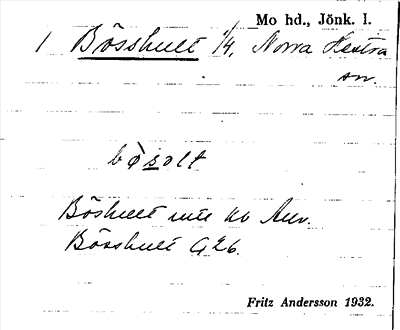 Mo hd., Jönk. l.
1 Bösshult 1/4, Norra Hestra
sn.
bo̊̀solt
Böshult
Bösshult G26.
Fritz Andersson 1932.